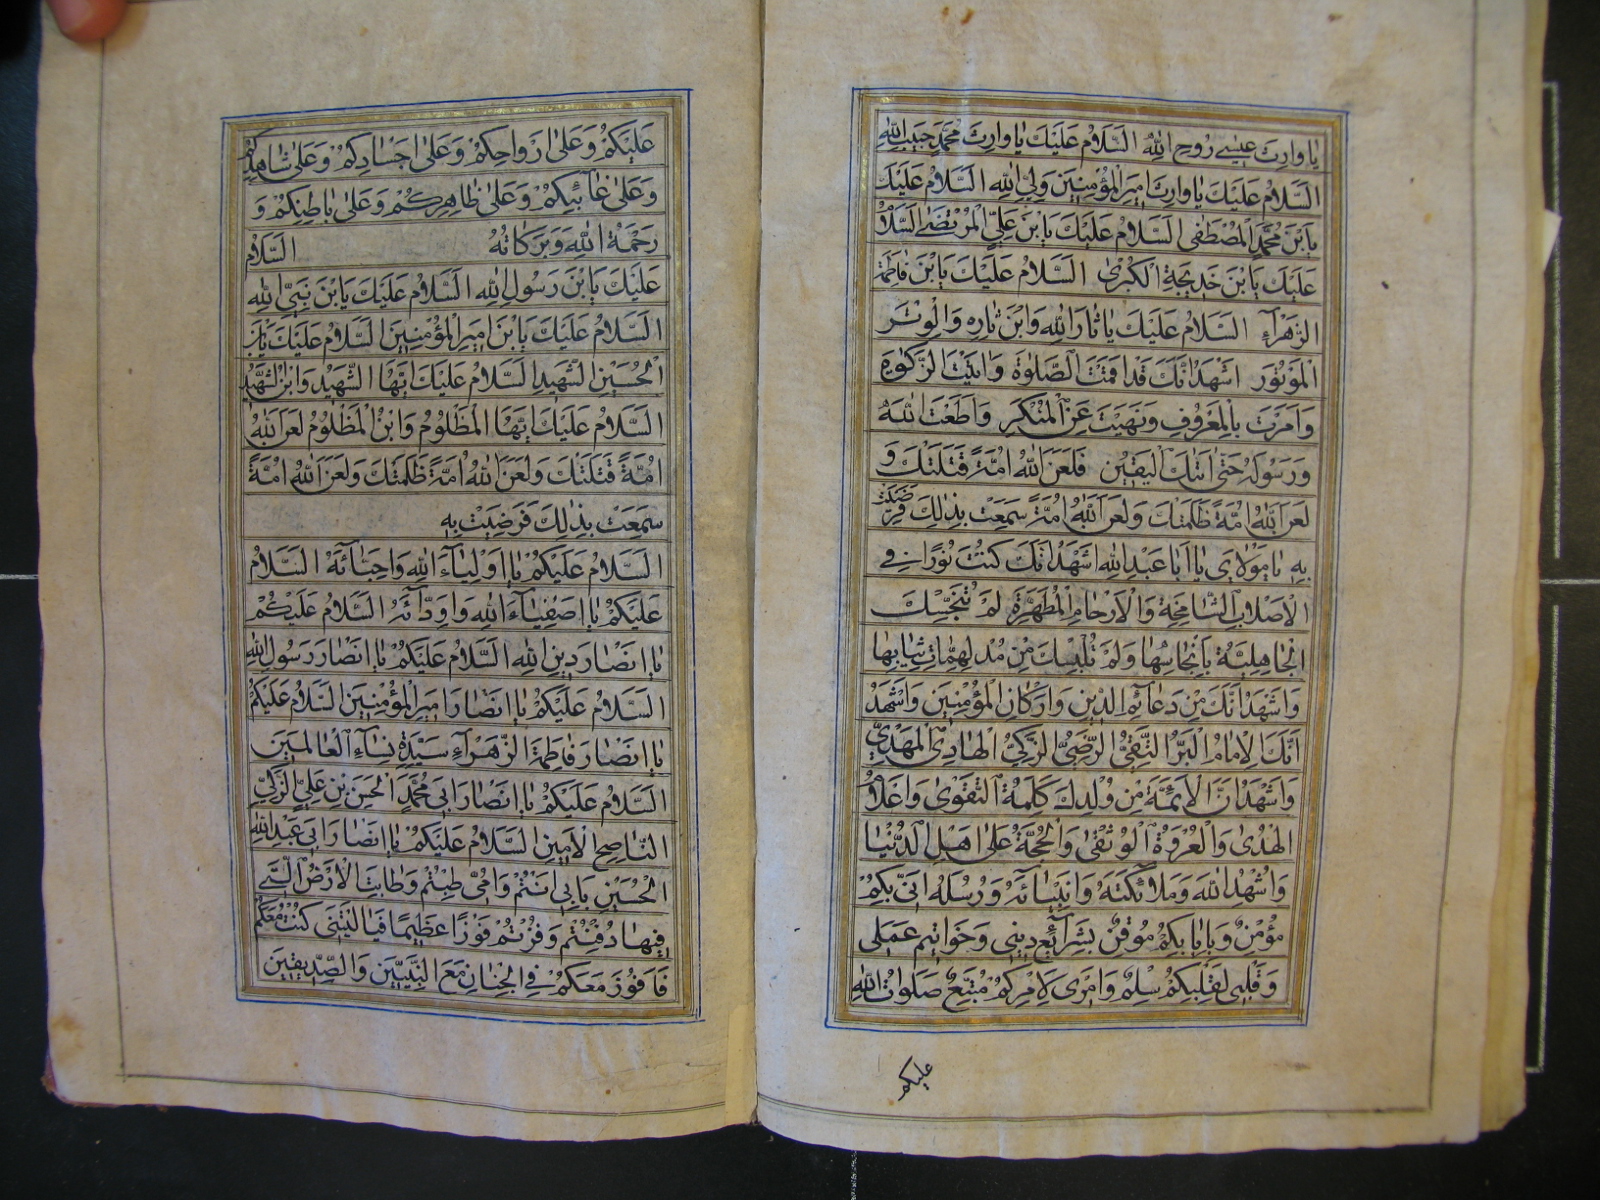 يا وارِثَ عيسى رُوحِ اللهِ السَّلامُ عَلَيْكَ يا وارِثَ مُحَمَّدٍ حَبيبِ اللهِ
السَّلامُ عَلَيْكَ يا وارِثَ اَميرِ الْمُؤْمِنينَ وَلِيِّ اللهِ السَّلامُ عَلَيْكَ
يَا بْنَ مُحَمَّدٍ الْمُصْطَفى السَّلامُ عَلَيْكَ يَا بْنَ عَلِيٍّ الْمُرْتَضى السَّلامُ
عَلَيْكَ يَا بْنَ خَديجَةَ الْكُبْرى السَّلامُ عَلَيْكَ يَا بْنَ فاطِمَةَ
الزَّهْرآءِ السَّلامُ عَلَيْكَ يا ثارَ اللهِ وَابْنَ ثارِهِ وَالْوِتْرَ
الْمَوْتُورَ اَشْهَدُ اَنَّكَ قَدْ اَقَمْتَ الصَّلوةَ وَاتَيْتَ الزَّكوةَ
وَاَمَرْتَ بِالْمَعْرُوفِ وَنَهَيْتَ عَنِ الْمُنْكَرِ وَاَطَعْتَ اللهَ
وَرَسُولَهُ حَتّى اَتيكَ الْيَقينُ فَلَعَنَ اللهُ اُمَّةً قَتَلَتْكَ وَ
لَعَنَ اللهُ اُمَّةً ظَلَمَتْكَ وَلَعَنَ اللهُ اُمَّةً سَمِعَتْ بِذلِكَ فَرَضِيَتْ
بِهِ يا مَوْلايَ يا اَبا عَبْدِ اللهِ اَشْهَدُ اَنَّكَ كُنْتَ نُورًا فِي
الْاَصْلابِ الشّامِخَةِ وَالْاَرْحامِ الْمُطَهَّرَةِ لَمْ تُنَجِّسْكَ
الْجاهِلِيَّةُ بِاَنْجاسِها وَلَمْ تُلْبِسْكَ مِنْ مُدْلَهِمّاتِ ثِيابِها
وَاَشْهَدُ اَنَّكَ مِنْ دَعآئِمِ الدّينِ وَاَرْكانِ الْمُؤْمِنينَ وَاَشْهَدُ
اَنَّكَ الْاِمامُ الْبَرُّ التَّقِيُّ الرَّضِيُّ الزَّكِيُّ الْهادِي الْمَهْدِيُّ
وَاَشْهَدُ اَنَّ الْاَئِمَّةَ مِنْ وُلْدِكَ كَلِمَةُ التَّقْوى وَاَعْلامُ
الْهُدى وَالْعُرْوَةُ الْوُثْقى وَالْحُجَّةُ عَلى اَهْلِ الدُّنْيا
وَاُشْهِدُ اللهَ وَمَلائِكَتَهُ وَاَنْبِيآئَهُ وَرُسُلَهُ اَنّي بِكُمْ
مُؤْمِنٌ وَبِاِيابِكُمْ مُوقِنٌ بِشَرآئِعِ ديني وَخَواتيمِ عَمَلي
وَقَلْبي لِقَلْبِكُمْ سِلْمٌ وَاَمْري لِاَمْرِكُمْ مُتَّبِعٌ صَلَواتُ اللهِ
عليكم
عَلَيْكُمْ وَعَلى اَرْواحِكُمْ وَعَلى اَجْسادِكُمْ وَعَلى شاهِدِكُمْ
وَعَلى غآئِبِكُمْ وَعَلى ظاهِرِكُمْ وَعَلى باطِنِكُمْ وَ
رَحْمَةُ اللهِ وَبَرَكاتُهُ السَّلامُ
عَلَيْكَ يَا بْنَ رَسُولِ اللهِ السَّلامُ عَلَيْكَ يَا بْنَ نَبِيِّ اللهِ
السَّلامُ عَلَيْكَ يَا بْنَ اَميرِ الْمُؤْمِنينَ السَّلامُ عَلَيْكَ يَا بْنَ
الْحُسَيْنِ الشَّهيدِ السَّلامُ عَلَيْكَ اَيُّهَا الشَّهيدُ وَابْنُ الشَّهيدِ
السَّلامُ عَلَيْكَ اَيُّهَا الْمَظْلُومُ وَابْنُ الْمَظْلُومِ لَعَنَ اللهُ
اُمَّةً قَتَلَتْكَ وَلَعَنَ اللهُ اُمَّةً ظَلَمَتْكَ وَلَعَنَ اللهُ اُمَّةً
سَمِعَتْ بِذلِكَ فَرَضِيَتْ بِهِ
السَّلامُ عَلَيْكُمْ يا اَوْلِيآءَ اللهِ وَاَحِبّآئَهُ السَّلامُ
عَلَيْكُمْ يا اَصْفِيآءَ اللهِ وَاَوِدّآئَهُ السَّلامُ عَلَيْكُمْ
يا اَنْصارَ دينِ اللهِ السَّلامُ عَلَيْكُمْ يا اَنْصارَ رَسُولِ اللهِ
السَّلامُ عَلَيْكُمْ يا اَنْصارَ اَميرِ الْمُؤْمِنينَ السَّلامُ عَلَيْكُمْ
يا اَنْصارَ فاطِمَةَ الزَّهْرآءِ سَيِّدَةِ نِسآءِ الْعالَمينَ
السَّلامُ عَلَيْكُمْ يا اَنْصارَ اَبي مُحَمَّدٍ الْحَسَنِ بْنِ عَلِيٍّ الزَّكِيِّ
النّاصِحِ الْاَمينِ السَّلامُ عَلَيْكُمْ يا اَنْصارَ اَبي عَبْدِ اللهِ
الْحُسَيْنِ بِاَبي اَنْتُمْ وَاُمّي طِبْتُمْ وَطابَتِ الْاَرْضُ الَّتي
فيها دُفِنْتُمْ وَفُزْتُمْ فَوْزًا عَظيمًا فَيا لَيْتَني كُنْتُ مَعَكُمْ
فَاَفُوزَ مَعَكُمْ فِي الْجِنانِ مَعَ النَّبِيّينَ وَالصِّدّيقينَ